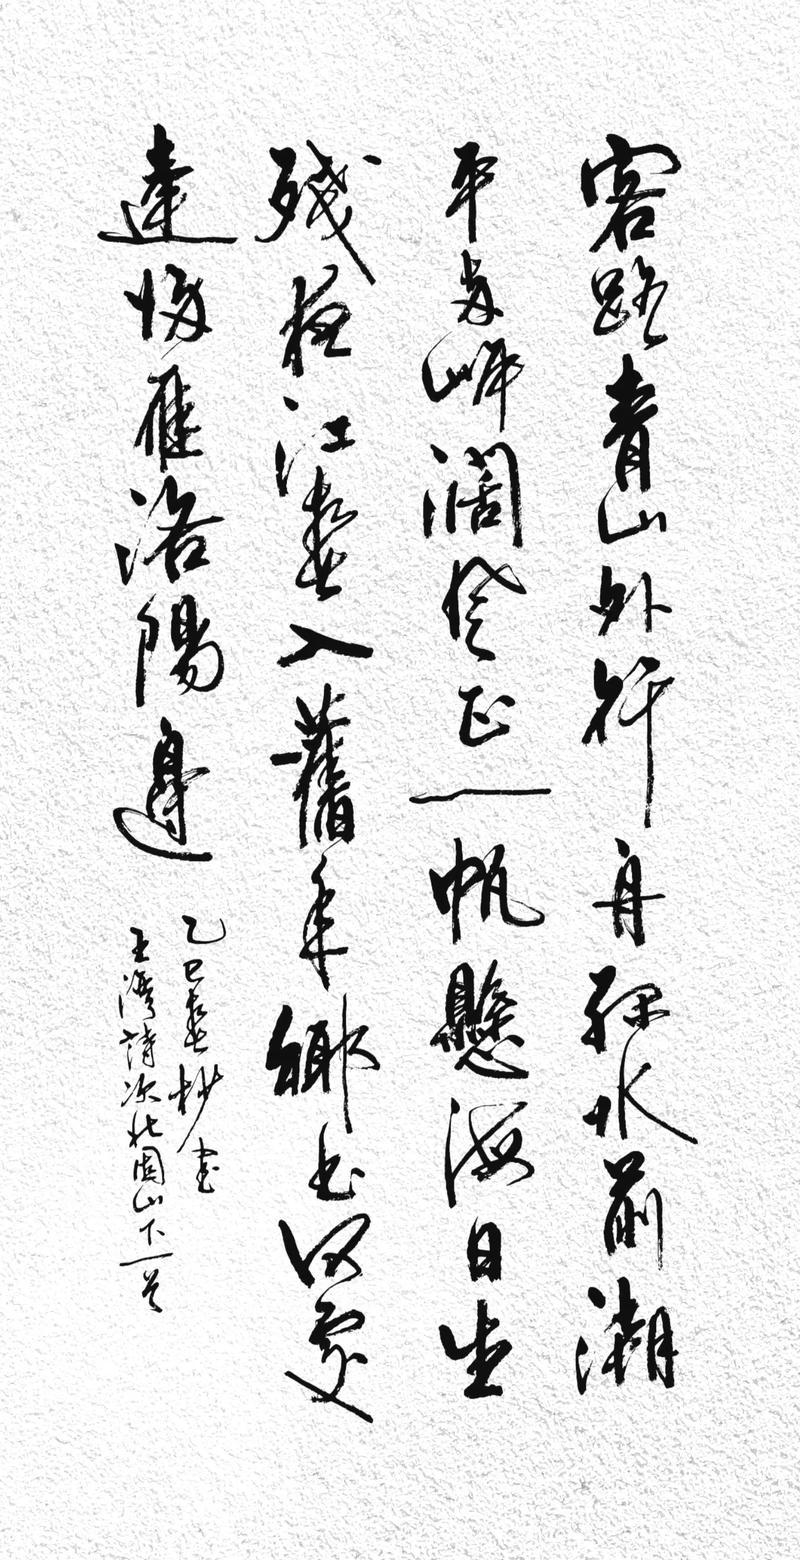 客路青山外行舟綠水前潮
平兩岸濶風正一帆懸海日生
殘夜江春入舊年鄉書何處
達歸雁洛陽邊
乙巳春杪書
王灣詩次北固山下一首